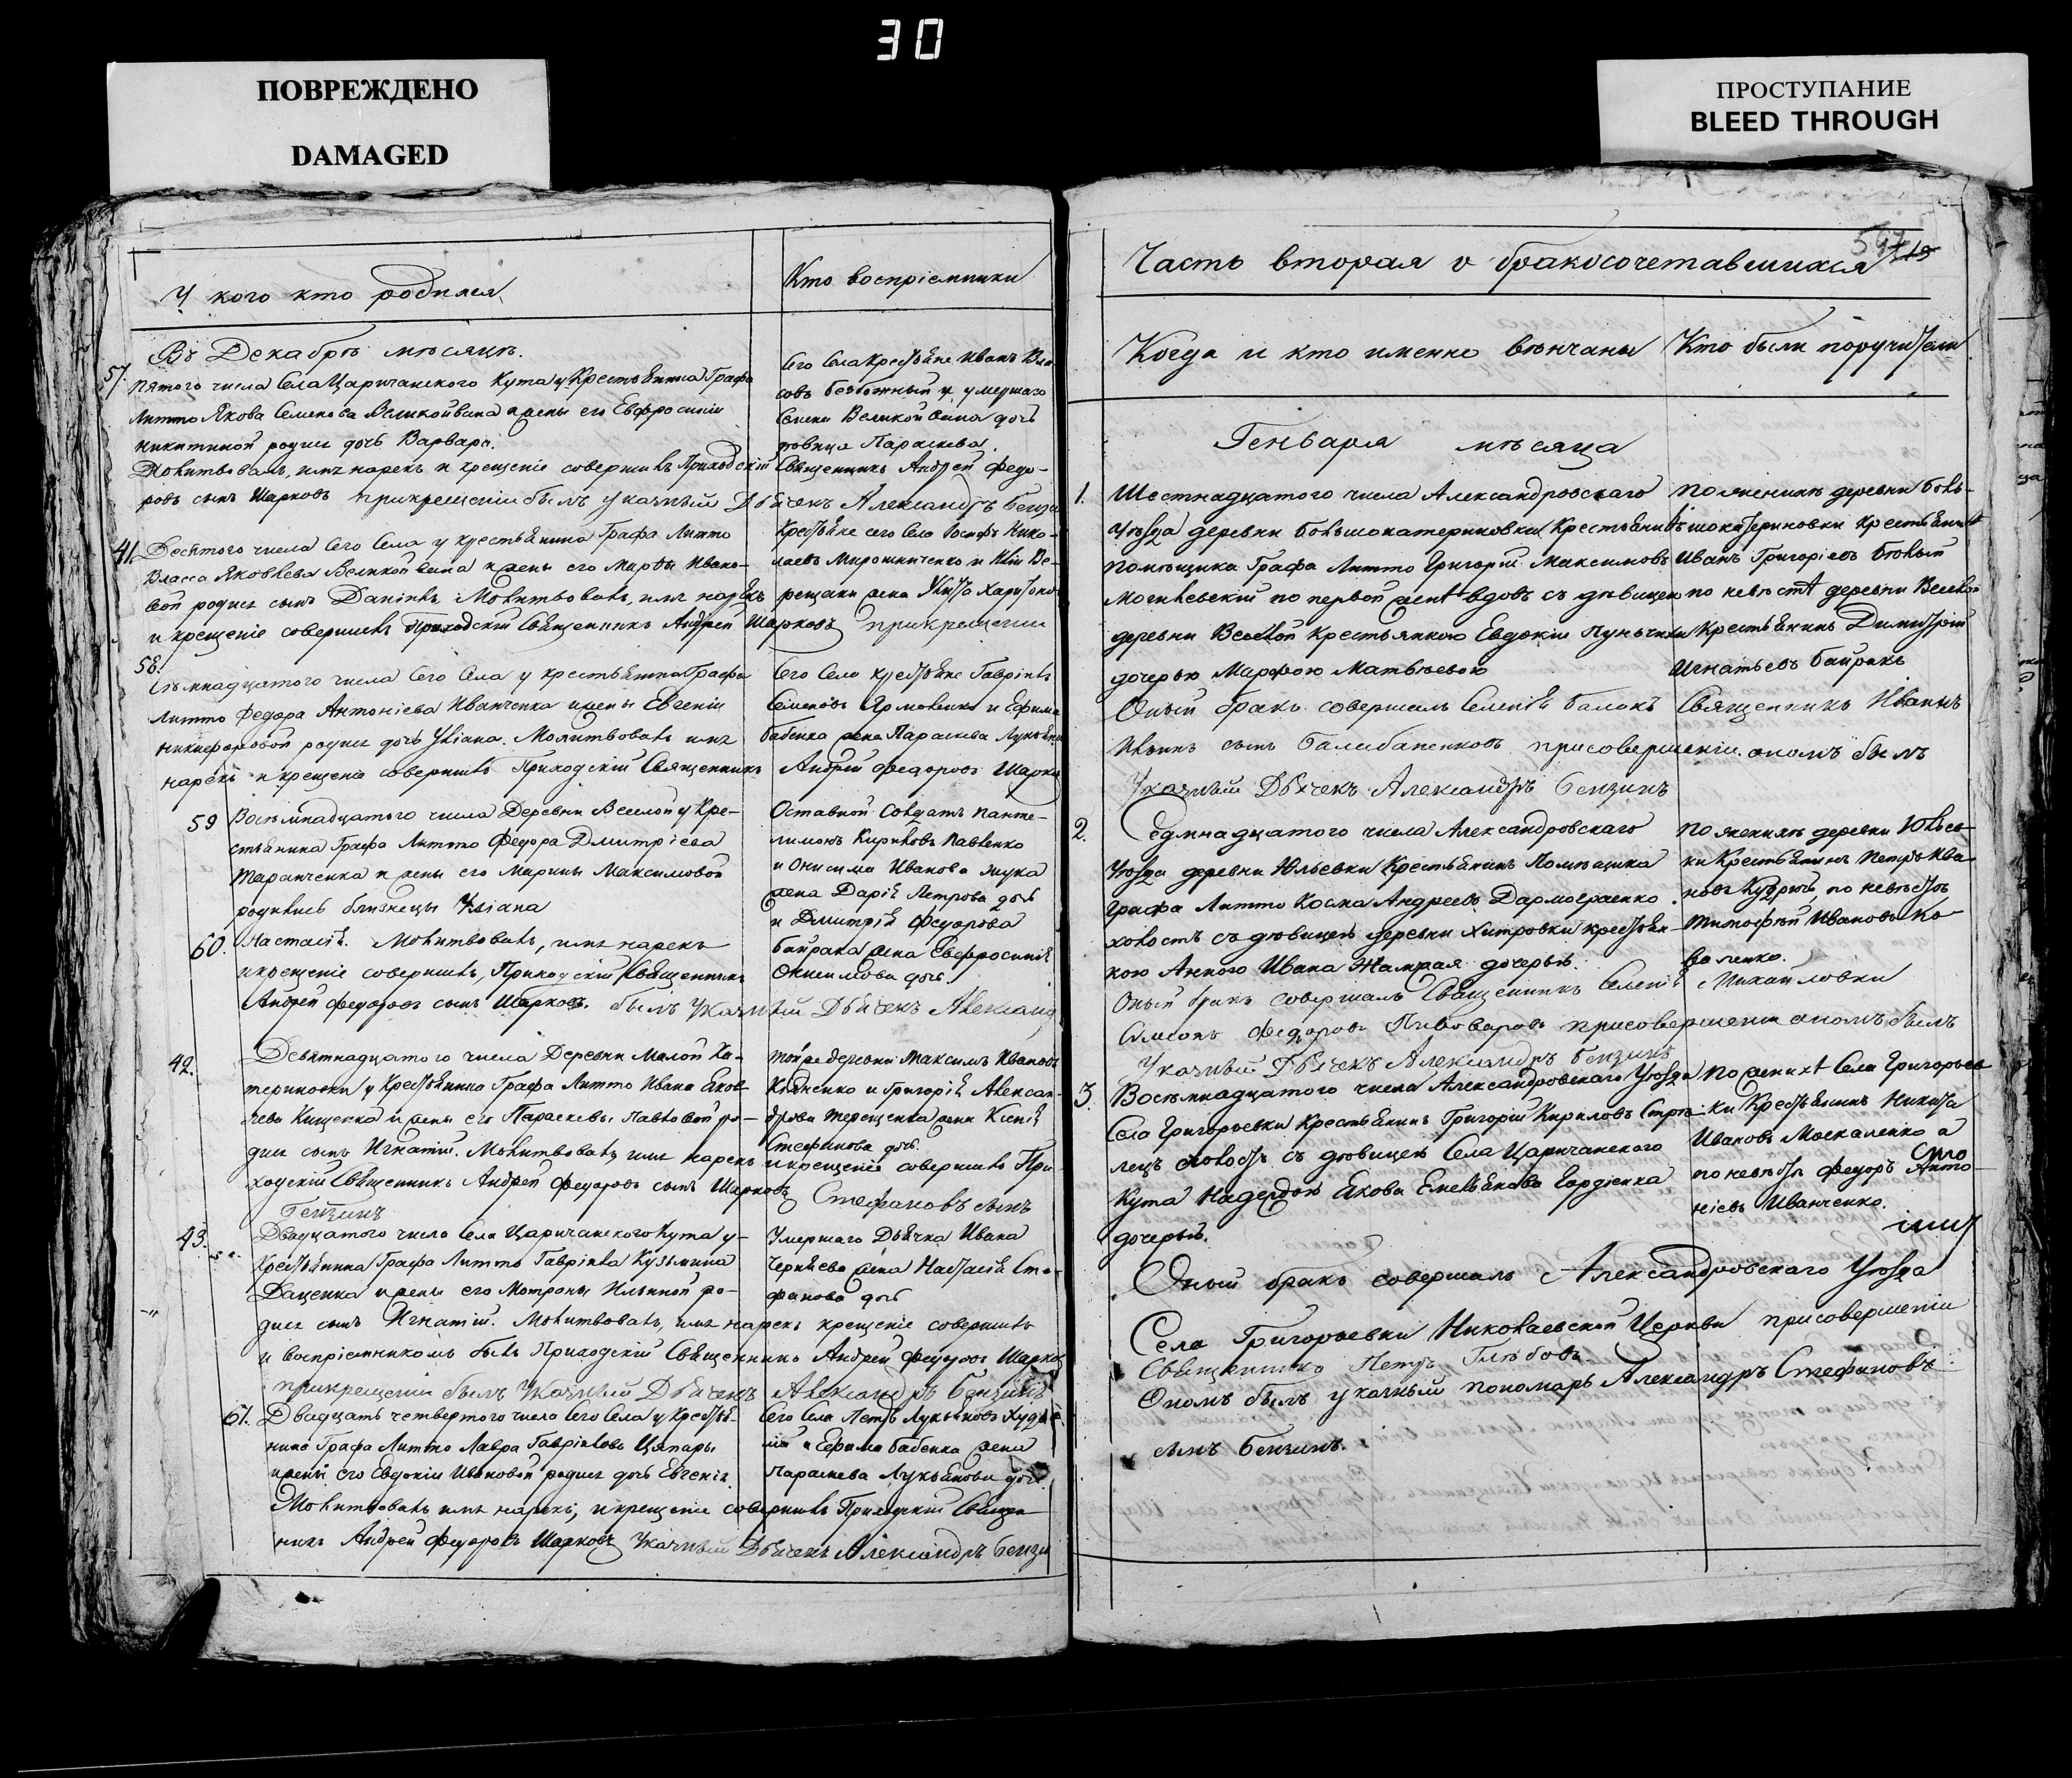 30
ПОВРЕЖДЕНО
DAMAGED
ПРОСТУПАНИЕ
BLEED THROUGH
У кого кто родился
Кто воспріемники
Въ Декабрѣ мѣсяцѣ.
57.
пятого числа Села Царичанского Кута у Крестьянина Графа
Литто Якова Семенова Великоивана жены его Евфросиніи
никитиной родись дочь Варвара.
Молитвовалъ, имя нарекъ и крещеніе совершилъ Приходскій Священникъ Андрей Федо-
ровъ сынъ Шарковъ прикрещеніи былъ указный Дьячекъ Александръ Бензи
Сего Села Крестьяне Иванъ Вла-
совъ Безбожный и умершаго
Семена Великоивана дочь
девица Параскева.
41.
Десятого числа Сего Села у крестьянина Графа Литто
Власа Яковлева Великоивана жены его Марѳы Ивано-
вой родись сынъ Даніилъ. Молитвовалъ, имя нарекъ
и крещеніе совершилъ Приходскій Священникъ Андрей Шарковъ прикрещеніи
Крестьяне сего Села Іосифъ Нико-
лаевъ Мирошниченко и Иліи Ве-
рещаки жена Улита Харитоно
58.
Сѣмнадцатого числа Сего Села у крестьянина Графа
Литто Федора Антоніева Иванченка жены Евгеніи
никифоровой родись дочь Уліана. Молитвовалъ имя
нарекъ и крещеніе совершилъ Приходскій Священникъ Андрей Федоровъ Шарки
Сего Села крестьяне Гавріилъ
Семеновъ Ярмоленко и Ефима
Бабенка жена Параскева Лукьяна
59
Восѣмнадцатого числа Деревни Веселой у Кре-
стьянина Графа Литто Федора Дмитріева
Таранченка жены его Марины Максимовой
родились близнецы Уліана
60.
Настасія. Молитвовалъ, имя нарекъ
и крещеніе совершилъ, Приходскій Священникъ
Андрей Федоровъ сынъ Шарковъ. былъ Указный Дьячекъ Александ
Оставной Солдатъ Панте-
лимонъ Кириловъ Павленко
и Онисима Иванова Жука
жена Дарія Петрова дочь
и Дмитрій Федорова
Байрака жена Евфросинія
Онисимова дочь.
42.
Девятнадцатого числа Деревни Малой Ка-
териновки у Крестьянина Графа Литто Ивана Яков-
лева Кищенка и жены его Параскевы Павловой ро-
дись сынъ Игнатій. Молитвовалъ имя нарекъ и крещеніе совершилъ При-
ходскій Священникъ Андрей Федоровъ сынъ Шарковъ Стефановъ сынъ
Бензинъ
тойже деревни Максимъ Ивановъ
Кияненко и Григорія Алексан-
дрова Терещенка жена Ксенія
Стефанова дочь.
43.
Двадцатого числа Села Царичанского Кута у
Крестьянина Графа Литто Гавріила Кузьмина
Даценка жены его Мотроны Ильиной ро-
дись сынъ Игнатій. Молитвовалъ, имя нарекъ крещеніе совершилъ
и воспріемникомъ былъ Приходскій Священникъ Андрей Федоровъ Шарков
прикрещеніи былъ Указный Дьячекъ Александръ Бензинъ
Умершаго Дьячка Ивана
Черняева жена Настасія Сте-
фанова дочь
61.
Двадцать четвертого числа Сего Села у Крестья-
нина Графа Литто Лавра Гавріилова Цяпары
жены его Евдокіи Ивановой родись дочь Евгенія
Молитвовалъ имя нарекъ, и крещеніе совершилъ Приходскій Свяще-
никъ Андрей Федоровъ Шарковъ Указный Дьячекъ Александръ Бензи
Сего Села Петръ Лукьяновъ Худо
ій и Ефима Бабенка жена
Параскева Лукьянова дочь.
Часть вторая о бракосочетавшихся
Когда и кто именно вѣнчаны
Кто были поручители
Генваря мѣсяца
1.
Шестнадцатого числа Александровскаго
Уѣзда деревни Большокатериновки Крестьянинъ
помѣщика Графа Литто Григорій Максимовъ
Могилевскій по первой женѣ вдовъ съ дѣвицею
деревни Веселой крестьянкою Евдокіи Луньчихи
дочерью Марфою Матвѣевою
Оный бракъ совершалъ Селенія Балокъ Священникъ Иванъ
Ивинъ сынъ Балабаненковъ присовершеніи ономъ былъ
Указный Дьячекъ Александръ Бензинъ
по женихѣ деревни Боль-
шокатериновки крестьянинъ
Иванъ Григоріевъ Бюлый
по невѣстѣ деревни Веселой
Крестьянинъ Димитрій
Игнатьевъ Байракъ
2.
Седмнадцатого числа Александровскаго
Уѣзда деревни Юльевки Крестьянинъ Помѣщика
Графа Литто Косма Андреевъ Дармограенко
холостъ съ дѣвицей деревни Хитровки крестьян-
кою Анною Ивана Жамрая дочерью.
Оный бракъ совершалъ Священникъ Селенія Михайловки
Симеонъ Федоровъ Пивоваровъ присовершеніи ономъ былъ
Указный Дьячекъ Александръ Бензинъ
по женихѣ деревни Юльев-
ки Крестьянинъ Петръ Ива-
новъ Кудрючъ, по невѣстѣ
Тимофѣй Ивановъ Ко-
валенко.
3.
Восѣмнадцатого числа Александровскаго Уѣзда
Села Григорьевки Крестьянинъ Григорій Кириловъ Стрѣ-
лецъ холостъ съ дѣвицей Села Царичанского
Кута Надеждою Якова Емельянова Гордіенка
дочерью.
по женихѣ Села Григорьев-
ки Крестьянинъ Никита
Ивановъ Москаленко а
по невѣстѣ Федоръ Анто-
ніевъ Иванченко.
Оный бракъ совершалъ Александровскаго Уѣзда
Села Григорьевки Николаевской Церкви присовершеніи
Священникъ Петръ Глѣбовъ.
Ономъ былъ указный пономарь Александръ Стефановъ
сынъ Бензинъ.